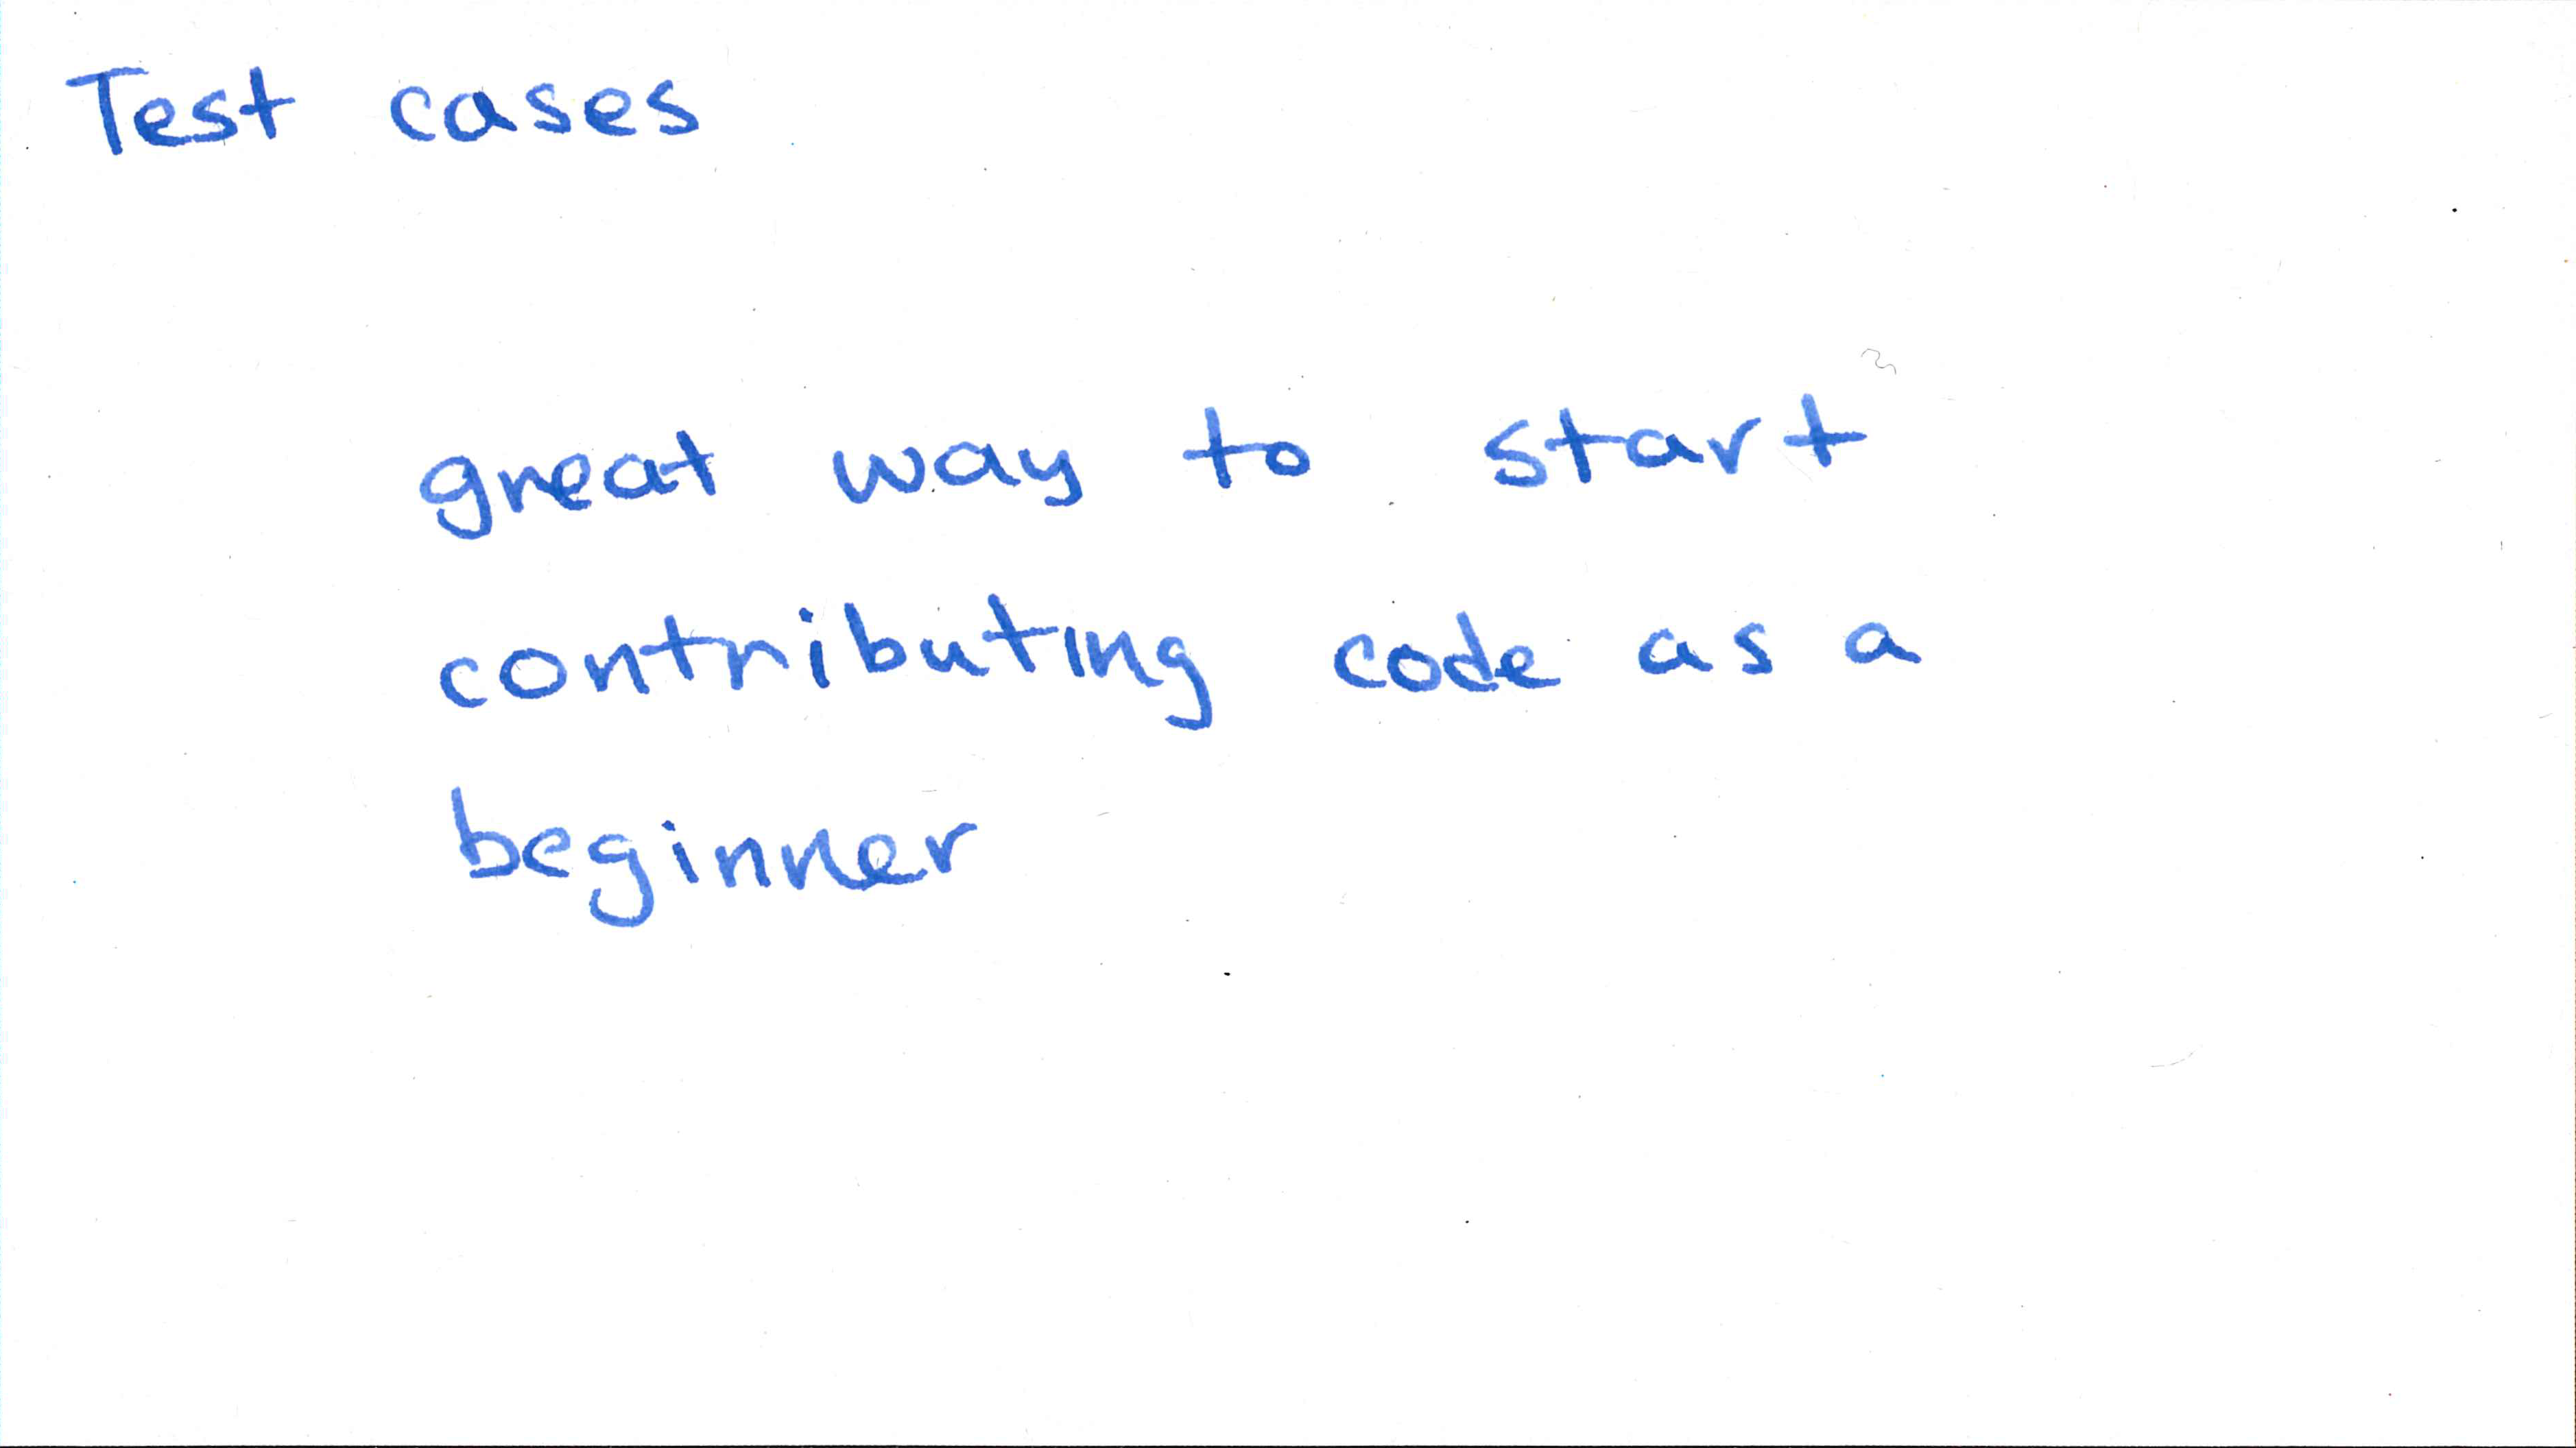 Test cases
great way to start
contributing code as a
beginner